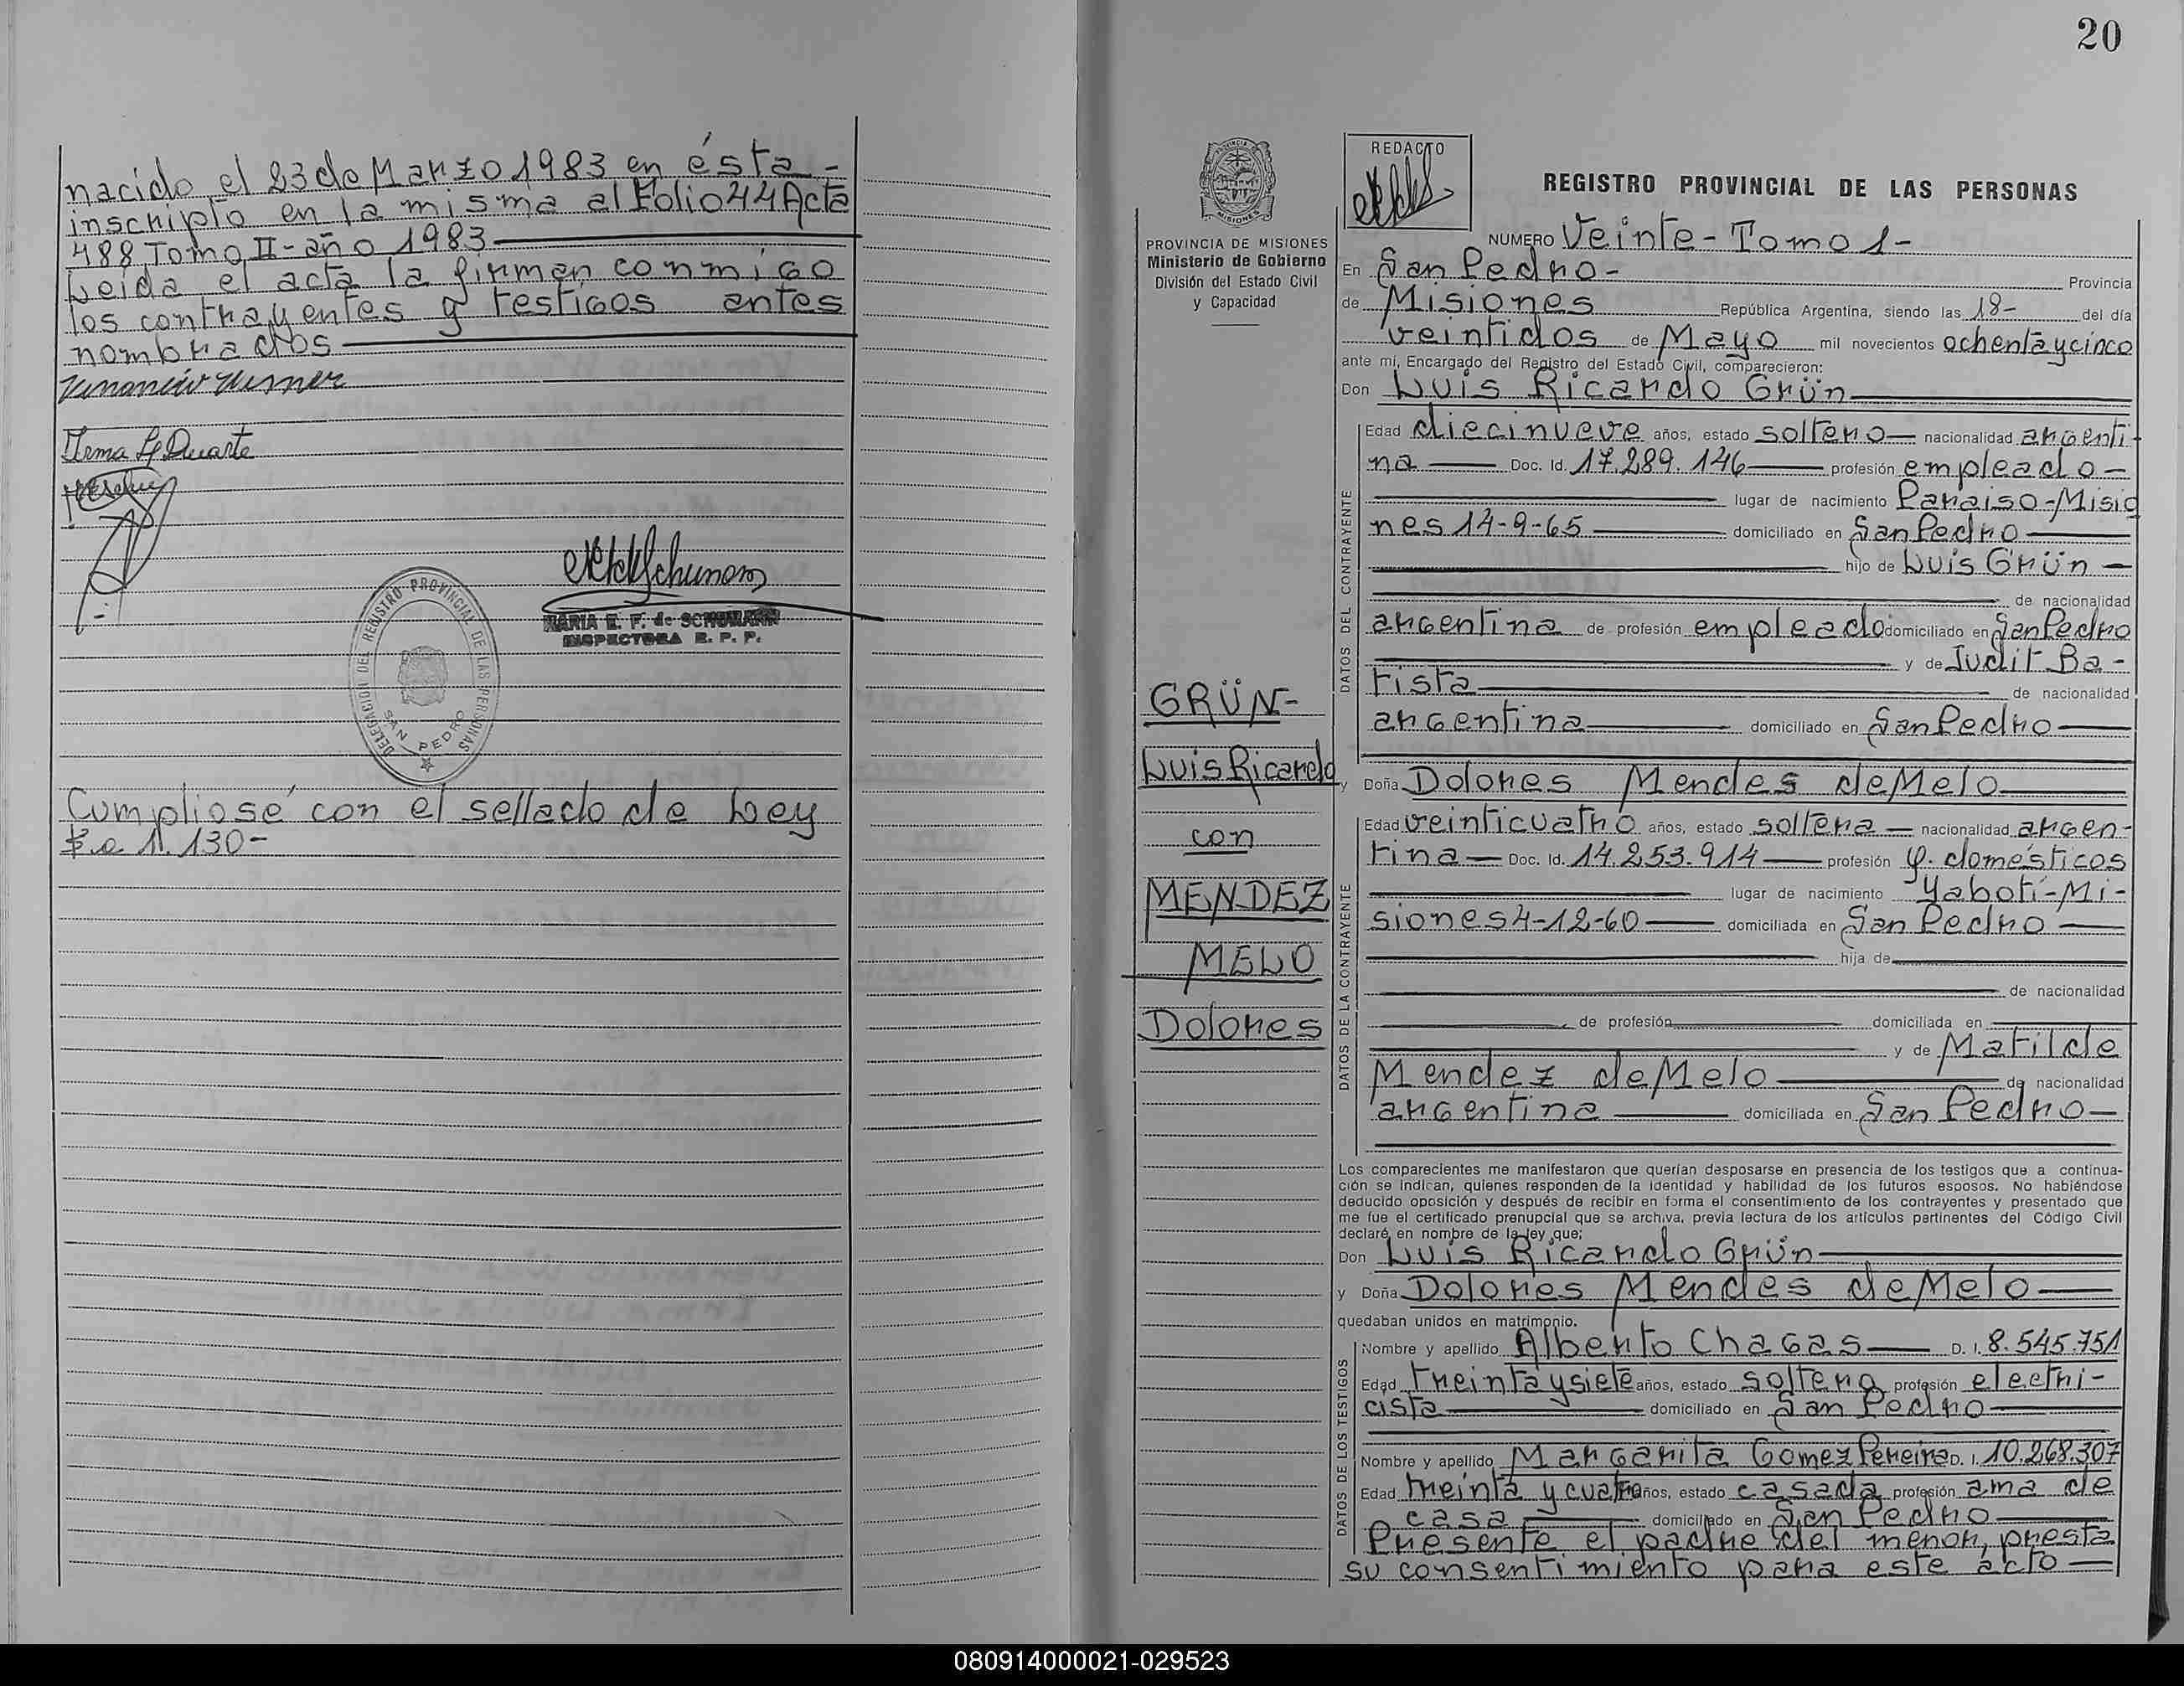 nacido el 23 de Marzo 1983 en ésta-
inscripto en la misma al Folio 44 Acta
488 Tomo II-año 1983
Leida el acta la firman conmigo
los contrayentes y testigos antes
nombrados
Irma L Duarte
MARIA E. F. de SCHUMANN
INSPECTORA R. P. P.
DELEGACION DEL REGISTRO PROVINCIAL DE LAS PERSONAS
SAN PEDRO
Cumpliosé con el sellado de Ley
$a 1.130-
20
PROVINCIA DE MISIONES
Ministerio de Gobierno
División del Estado Civil
y Capacidad
GRÜN-
Luis Ricardo
con
MENDEZ
MELO
Dolores
REDACTO
REGISTRO PROVINCIAL DE LAS PERSONAS
NUMERO Veinte- Tomo 1-
En San Pedro- Provincia
de Misiones República Argentina, siendo las 18- del día
veintidos de Mayo mil novecientos ochenta y cinco
ante mí, Encargado del Registro del Estado Civil, comparecieron:
Don Luis Ricardo Grün
DATOS DEL CONTRAYENTE
Edad diecinueve años, estado soltero nacionalidad argenti-
na Doc. Id. 17.289.146 profesión empleado-
lugar de nacimiento Paraiso-Misio
nes 14-9-65 domiciliado en San Pedro
hijo de Luis Grün
de nacionalidad
argentina de profesión empleado domiciliado en San Pedro
y de Judit Ba-
tista de nacionalidad
argentina domiciliado en San Pedro
y Doña Dolores Mendes de Melo
DATOS DE LA CONTRAYENTE
Edad veinticuatro años, estado soltera nacionalidad argen-
tina Doc. Id. 14.253.914 profesión q. domésticos
lugar de nacimiento Yabotí-Mi-
siones 4-12-60 domiciliada en San Pedro
hija de
de nacionalidad
de profesión domiciliada en
y de Matilde
Mendez de Melo de nacionalidad
argentina domiciliada en San Pedro
Los comparecientes me manifestaron que querían desposarse en presencia de los testigos que a continua-
ción se indican, quienes responden de la identidad y habilidad de los futuros esposos. No habiéndose
deducido oposición y después de recibir en forma el consentimiento de los contrayentes y presentado que
me fue el certificado prenupcial que se archiva, previa lectura de los artículos pertinentes del Código Civil
declaré, en nombre de la ley que;
Don Luis Ricardo Grün
y Doña Dolores Mendes de Melo
quedaban unidos en matrimonio.
DATOS DE LOS TESTIGOS
Nombre y apellido Alberto Chagas D. I. 8.545.751
Edad treinta y siete años, estado soltero profesión electri-
cista domiciliado en San Pedro
Nombre y apellido Margarita Gomez Pereira D. I. 10.268.307
Edad treinta y cuatro años, estado casada profesión ama de
casa domiciliado en San Pedro
Presente el padre del menor, presta
su consentimiento para este acto
080914000021-029523